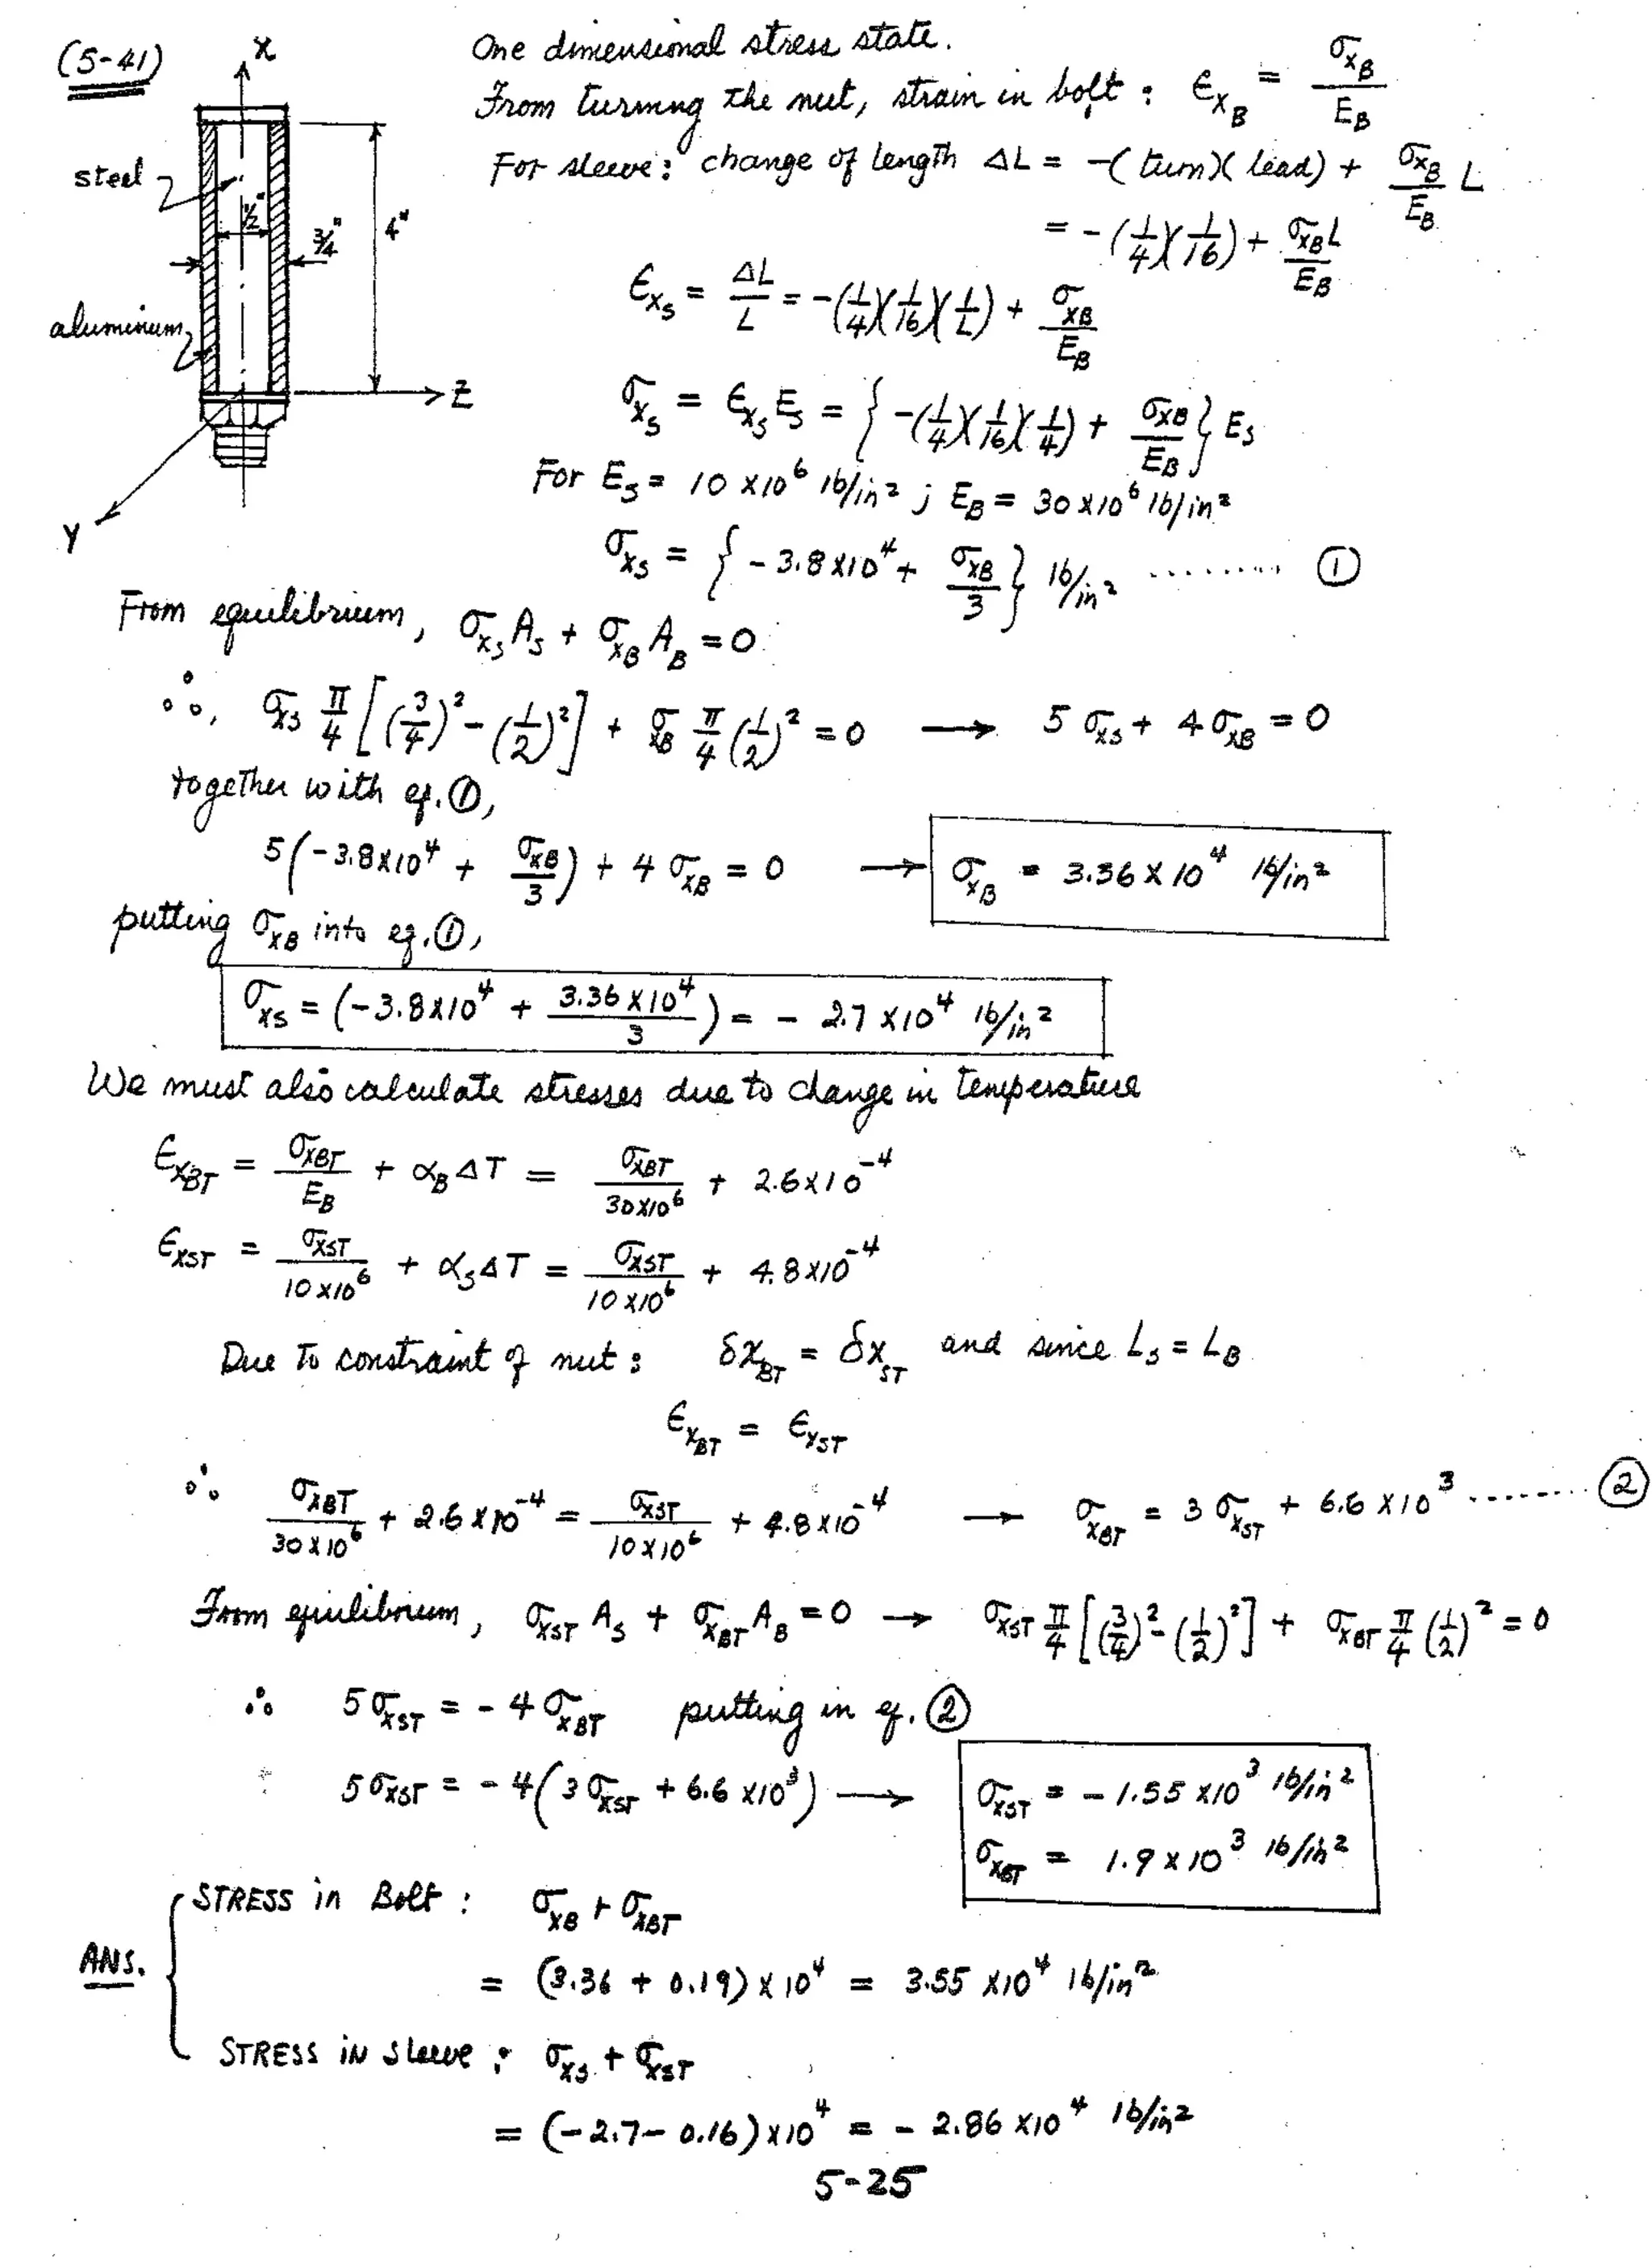 (5-41)
X
steel
1/2"
3/4"
4"
aluminum
Z
Y
One dimensional stress state.
From turning the nut, strain in bolt : ϵ_xB = σ_xB / E_B
For sleeve : change of length ΔL = -( turn)( lead) + σ_xB/E_B L
= -(1/4)(1/16) + σ_xB L / E_B
ϵ_xs = ΔL/L = -(1/4)(1/16)(1/L) + σ_xB/E_B
σ_xs = ϵ_xs E_s = { -(1/4)(1/16)(1/4) + σ_xB/E_B } E_s
For E_s = 10 x10^6 lb/in² ; E_B = 30 x10^6 lb/in²
σ_xs = { - 3.8x10^4 + σ_xB/3 } lb/in² ........ ①
From equilibrium, σ_xs A_s + σ_xB A_B = 0
∴, σ_xs π/4 [(3/4)² - (1/2)²] + σ_xB π/4 (1/2)² = 0 → 5 σ_xs + 4 σ_xB = 0
together with eq. ①,
5(-3.8x10^4 + σ_xB/3) + 4 σ_xB = 0 → σ_xB = 3.36 x 10^4 lb/in²
putting σ_xB into eq. ①,
σ_xs = (-3.8x10^4 + 3.36x10^4/3) = - 2.7 x10^4 lb/in²
We must also calculate stresses due to change in temperature
ϵ_xBT = σ_xBT/E_B + α_B ΔT = σ_xBT/30x10^6 + 2.6x10^-4
ϵ_xST = σ_xST/10x10^6 + α_s ΔT = σ_xST/10x10^6 + 4.8x10^-4
Due to constraint of nut : δx_BT = δx_ST and since L_s = L_B
ϵ_xBT = ϵ_xST
∴ σ_xBT/30x10^6 + 2.6x10^-4 = σ_xST/10x10^6 + 4.8x10^-4 → σ_xBT = 3 σ_xST + 6.6 x10^3 ........ ②
From equilibrium, σ_xST A_s + σ_xBT A_B = 0 → σ_xST π/4 [(3/4)² - (1/2)²] + σ_xBT π/4 (1/2)² = 0
∴ 5σ_xST = - 4 σ_xBT putting in eq. ②
5σ_xST = - 4(3 σ_xST + 6.6 x10^3) → σ_xST = - 1.55 x10^3 lb/in²
σ_xBT = 1.9 x 10^3 lb/in²
STRESS in Bolt : σ_xB + σ_xBT
ANS.
= (3.36 + 0.19) x 10^4 = 3.55 x10^4 lb/in²
STRESS in Sleeve : σ_xs + σ_xST
= (-2.7- 0.16) x10^4 = - 2.86 x10^4 lb/in²
5-25